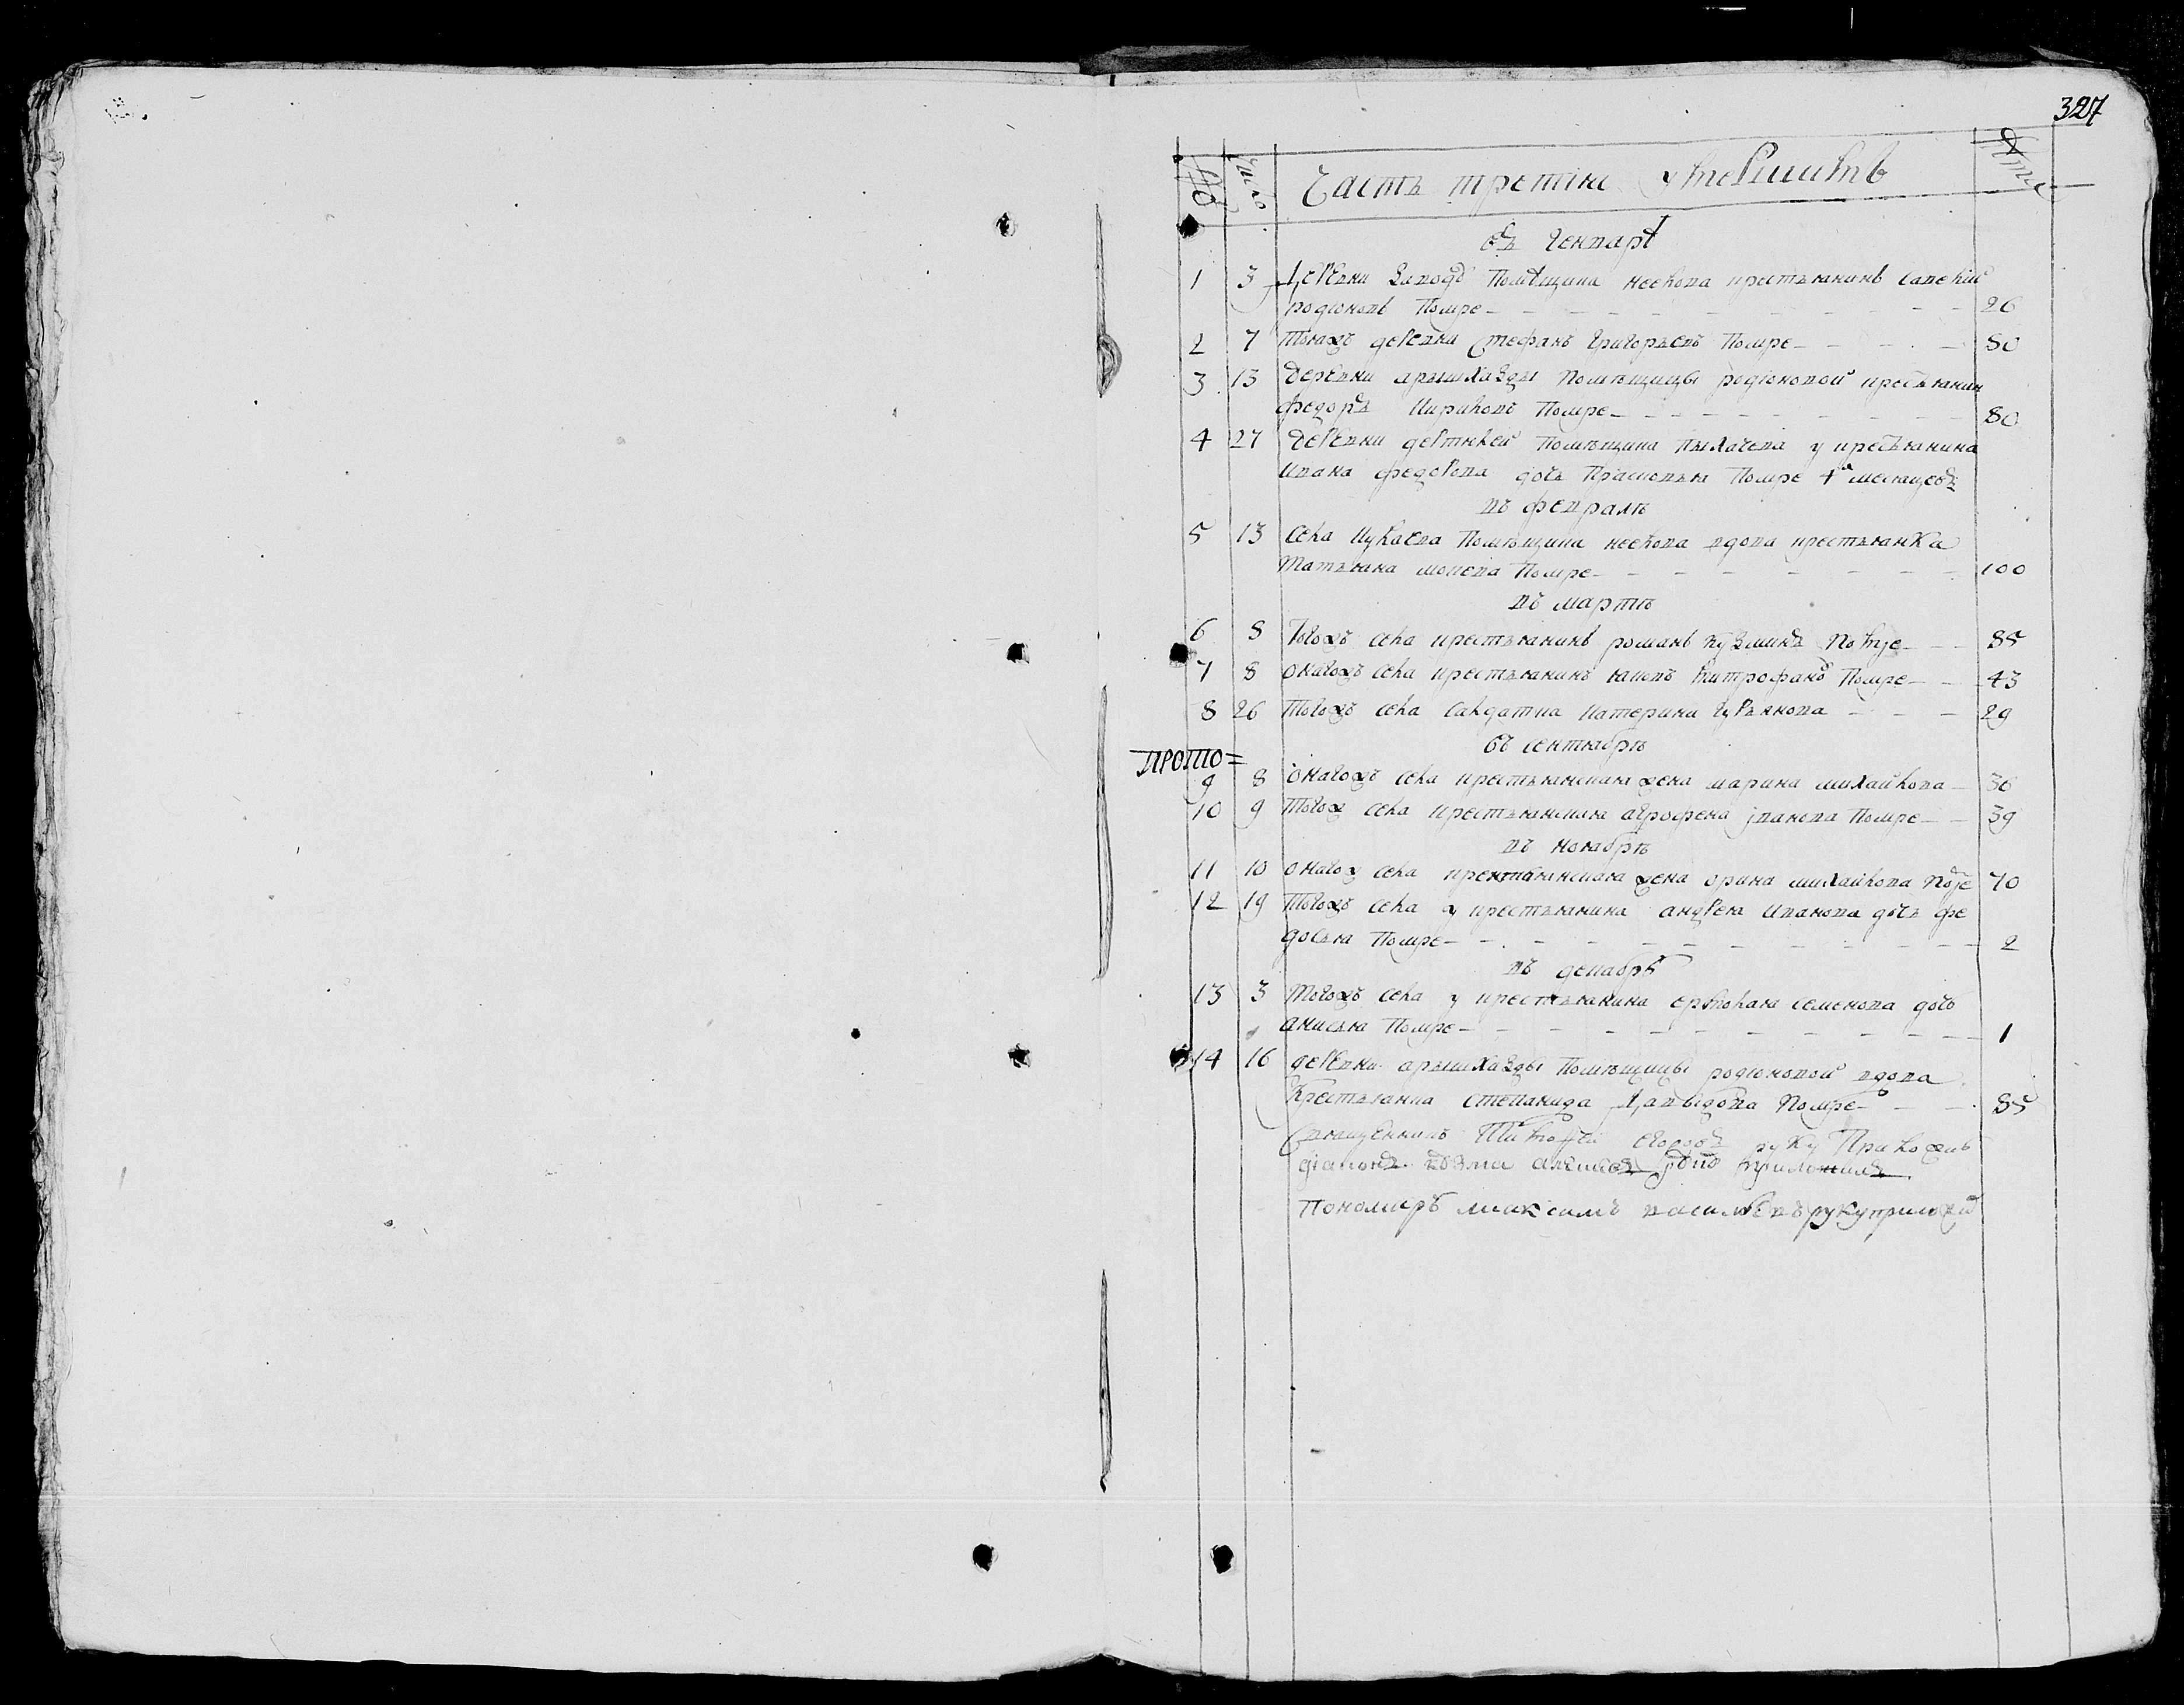 327
№ Число Часть третия умершихъ лѣта
въ генварѣ
1 3 деревни помѣщика крестьянинъ савелий
родионовъ помре 26
2 7 тояжъ деревни стефанъ григорьевъ помре 80
3 13 деревни арышхазды помѣщицы родионовой крестьянин
федоръ помре 80
4 27 деревни помѣщика у крестьянина
ивана федорова дочь прасковья помре 4 месяцовъ
въ февралѣ
5 13 села помѣщика вдова крестьянка
татьяна помре 100
въ мартѣ
6 8 тогожъ села крестьянинъ романъ кузминъ помре 85
7 8 онагожъ села крестьянинъ яковъ митрофановъ помре 43
8 26 тогожъ села салдатка катерина 29
въ сентябрѣ
ПРОТО=
9 8 онагожъ села крестьянская жена марина михайлова 36
10 9 тогож села крестьянская агрофена iванова помре 39
въ ноябрѣ
11 10 онагож села крестьянская жена орина михайлова помре 70
12 19 тогожъ села у крестьянина андрея иванова дочь фе
досья помре 2
въ декабрѣ
13 3 тогожъ села у крестьянина ермолая семенова дочь
анисья помре 1
14 16 деревни арышхазды помѣщицы родионовой вдова
крестьянка степанида давыдова помре 85
священникъ егоровъ руку приложилъ
диаконъ козма алексеевъ руку приложилъ
пономарь максимъ васильевъ руку приложил